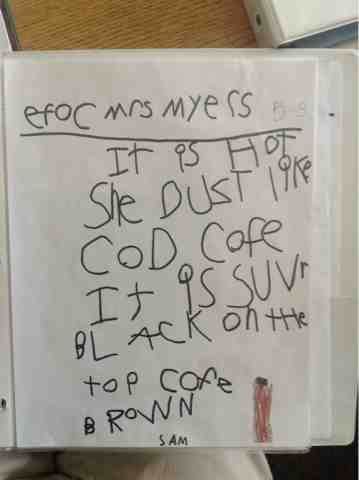 efoc mrs myerss B-9
It is HOT
She DUST like
COD Cofe
It is SUVr
BLACK on the
top cofe
BROWN
SAM